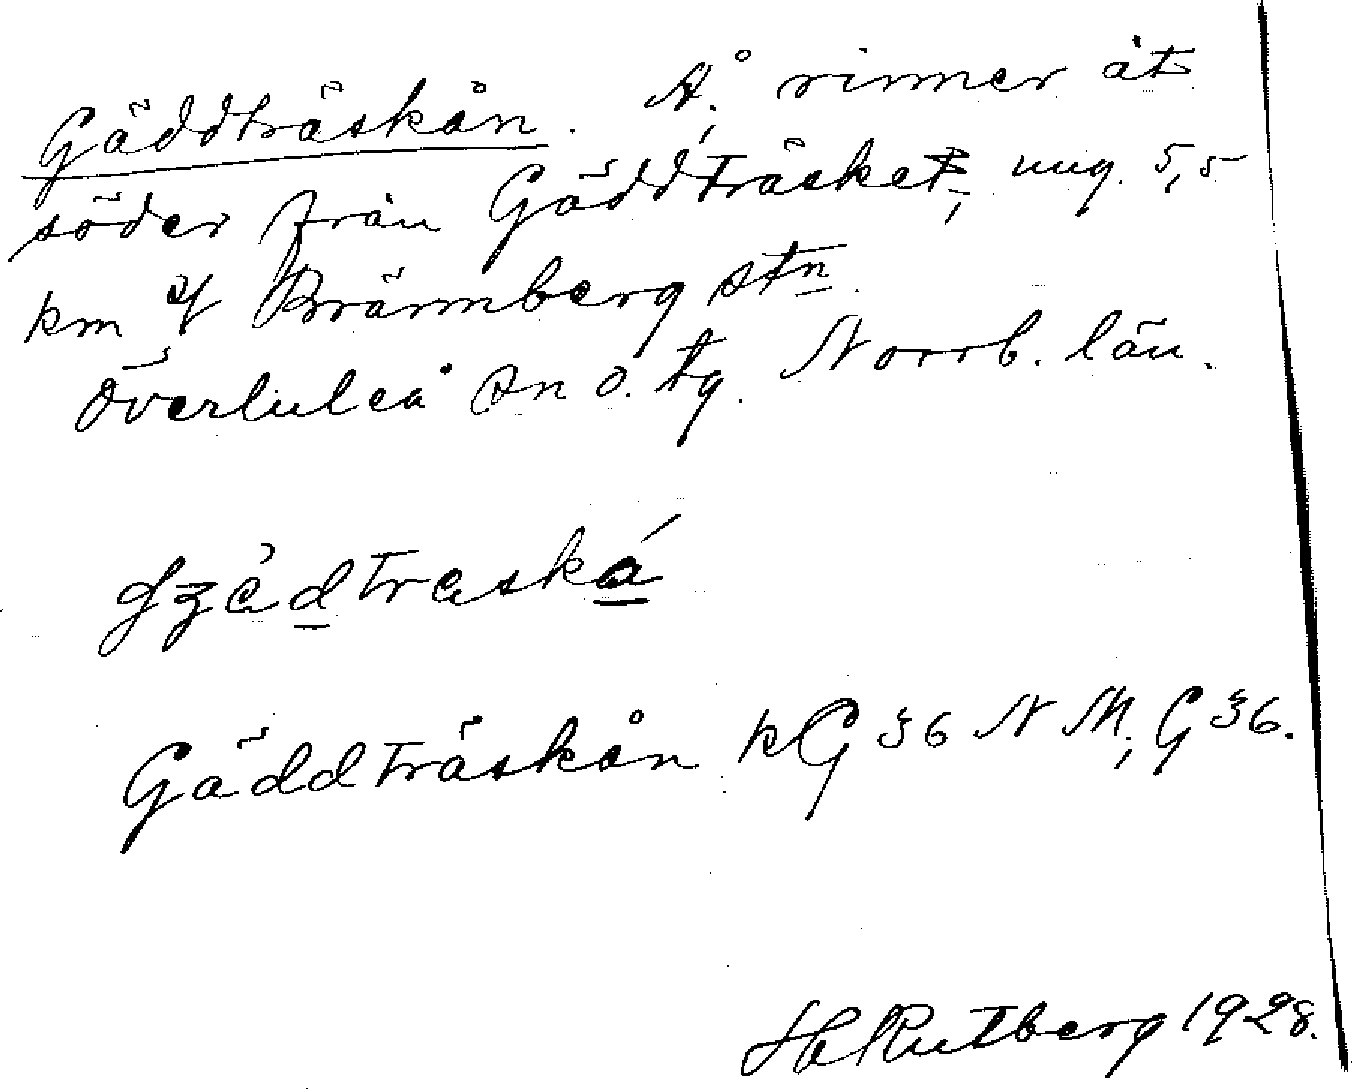 Gäddträskån. Å, rinner åt
söder från Gäddträsket, ung. 5,5
km Brännberg stn.
Överluleå sn o. tg. Norrb. län.
Gäddträskån kG 36 N M; G 36.
H Rutberg 1928.